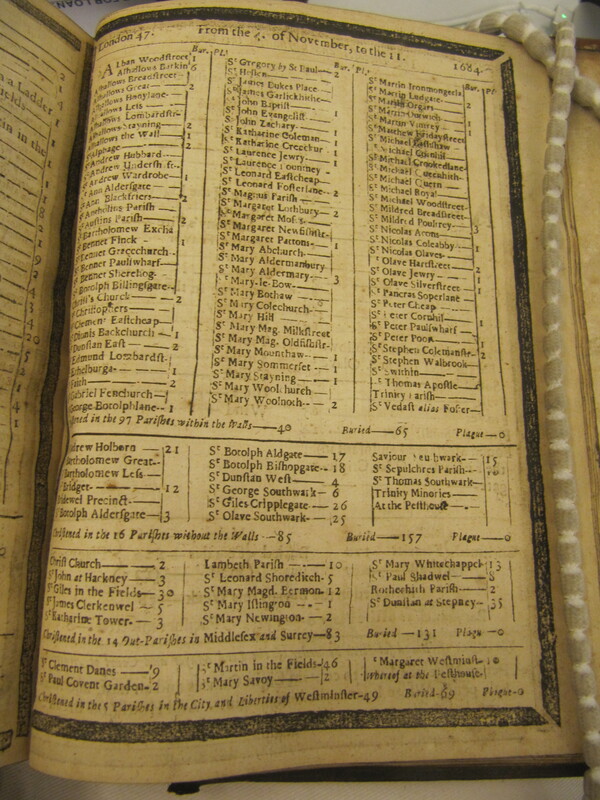 London 47. From the 4. of November, to the 11. 1684.
Bur. Pl.
Alban Woodstreet 1
Alhallows Barkin 6
Alhallows Breadstreet
Alhallows Great 2
Alhallows Honylane
Alhallows Less
Alhallows Lombardstr
Alhallows Stayning 2
Alhallows the Wall 1
Alphage 2
St Andrew Hubbard
St Andrew Undersh
St Andrew Wardrobe 1
St Ann Aldersgate
St Ann Blackfriers 2
St Antholins Parish
St Austins Parish 2
St Bartholomew Excha
St Bennet Finck 1
St Bennet Gracechurch
St Bennet Paulswharf
St Bennet Sherehog
St Botolph Billingsgate
Church 2
St Christophers
St Clement Eastcheap
St Dionis Backchurch 1
St Dunstan East 2
St Edmund Lombardst
Ethelburga 1
Faith 2
Gabriel Fenchurch
George Botolphlane 1
Bur. Pl.
St Gregory by St Paul 2
St Hellen
St James Dukes Place
St James Garlickhithe
St John Baptist
St John Evangelist
St John Zachary
St Katharine Coleman 1
St Katharine Creechur 1
St Laurence Jewry 1
St Laurence Pountney
St Leonard Eastcheap
St Leonard Fosterlane 2
St Magnus Parish
St Margaret Lothbury 2
St Margaret Moses
St Margaret Newfishstr
St Margaret Pattons 1
St Mary Abchurch
St Mary Aldermanbury
St Mary Aldermary 3
St Mary-le-Bow
St Mary Bothaw
St Mary Colechurch
St Mary Hill
St Mary Mag. Milkstreet
St Mary Mag. Oldfishstr
St Mary Mounthaw 1
St Mary Sommerset 1
St Mary Stayning 1
St Mary Woolchurch
St Mary Woolnoth 2
Bur. Pl.
St Martin Ironmongerla
St Martin Ludgate 2
St Martin Orgars
St Martin Outwich
St Martin Vintrey 1
St Matthew Fridaystreet
St Michael Bassishaw
St Michael Cornhil
St Michael Crookedlane
St Michael Queenhith
St Michael Quern
St Michael Royal
St Michael Woodstreet
St Mildred Breadstreet
St Mildred Poultrey 3
St Nicolas Acons
St Nicolas Coleabby 1
St Nicolas Olaves
St Olave Hartstreet 2
St Olave Jewry
St Olave Silverstreet 1
St Pancras Soperlane
St Peter Cheap
St Peter Cornhil
St Peter Paulswharf
St Peter Poor 1
St Stephen Colemanstr 2
St Stephen Walbrook
St Swithin
St Thomas Apostle
Trinity Parish
St Vedast alias Foster
Christened in the 97 Parishes within the Walls 40 Buried 65 Plague 0
Andrew Holborn 21
Bartholomew Great
Bartholomew Less
Bridget 12
Bridewel Precinct
Botolph Aldersgate 3
St Botolph Aldgate 17
St Botolph Bishopgate 18
St Dunstan West 4
St George Southwark 6
St Giles Cripplegate 26
St Olave Southwark 25
Saviour Southwark 15
St Sepulchres Parish 10
St Thomas Southwark
Trinity Minories
At the Pesthouse
Christened in the 16 Parishes without the Walls 85 Buried 157 Plague 0
Christ Church 2
St John at Hackney 3
St Giles in the Fields 30
St James Clerkenwel 5
St Katharine Tower 3
Lambeth Parish 10
St Leonard Shoreditch 5
St Mary Magd. Bermon 12
St Mary Islington 1
St Mary Newington 2
St Mary Whitechappel 13
St Paul Shadwel 8
Rothorhith Parish 2
St Dunstan at Stepney 35
Christened in the 14 Out-Parishes in Middlesex and Surrey 83 Buried 131 Plague 0
St Clement Danes 9
St Paul Covent Garden 2
St Martin in the Fields 46
St Mary Savoy 2
St Margaret Westminst 10
Whereof at the Pesthouse
Christened in the 5 Parishes in the City and Liberties of Westminster 49 Buried 69 Plague 0